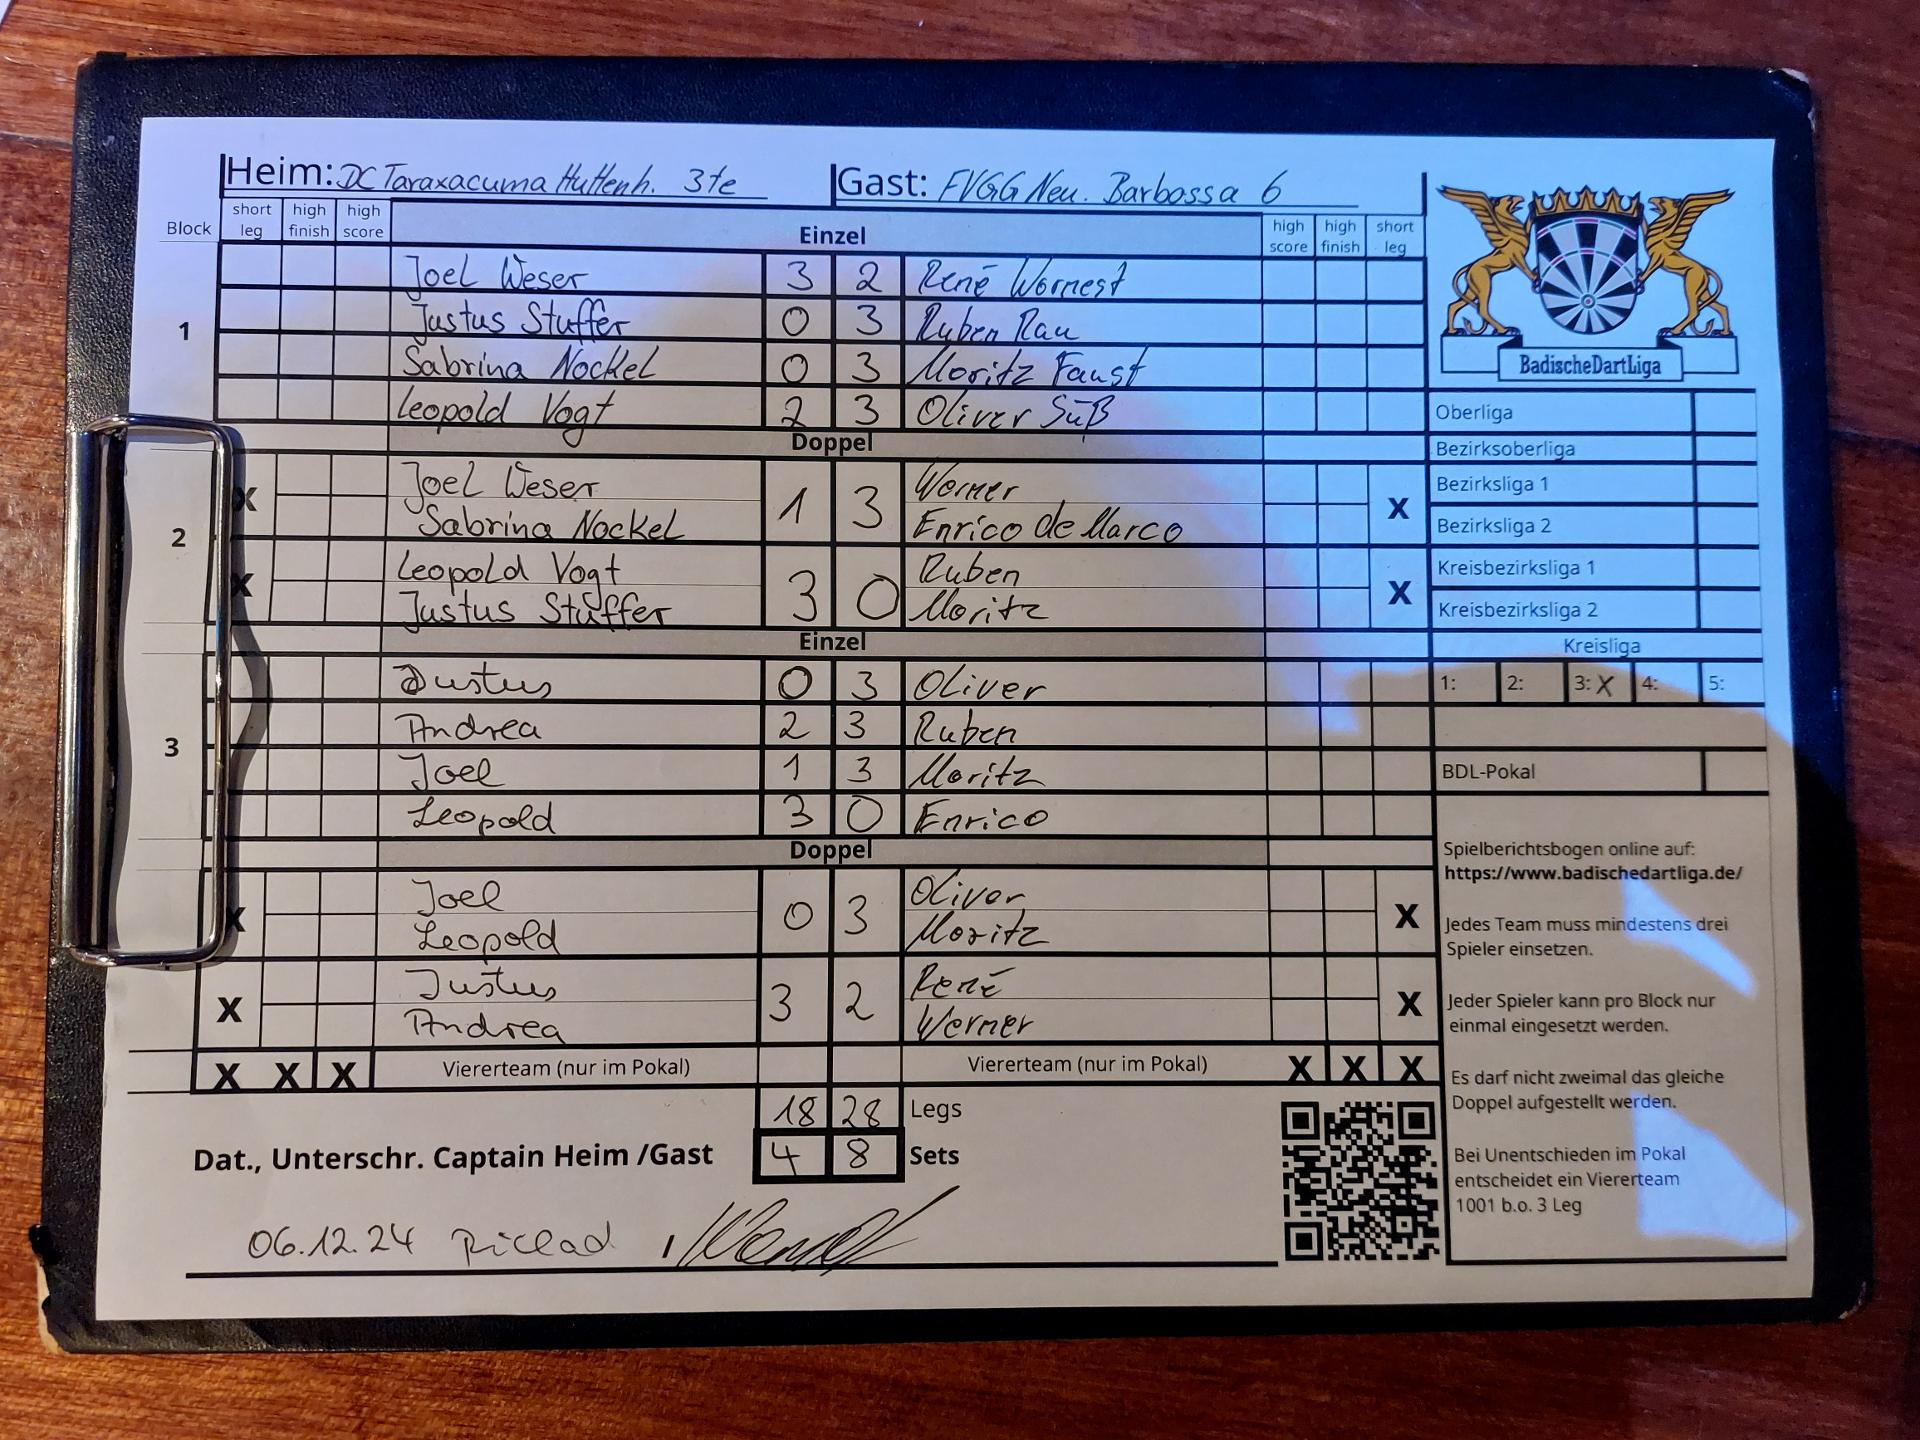 Heim: DC Taraxacuma Huttenh. 3te Gast: FVGG Neu. Barbossa 6
Block short leg high finish high score Einzel high score high finish short leg
1
Joel Weser 3 2 René Wornest
Justus Stuffer 0 3 Ruben Rau
Sabrina Nockel 0 3 Moritz Faust
Leopold Vogt 2 3 Oliver Süß
BadischeDartLiga
Oberliga
Doppel
Bezirksoberliga
2
X Joel Weser 1 3 Werner X
Sabrina Nockel Enrico de Marco
Bezirksliga 1
Bezirksliga 2
X Leopold Vogt 3 0 Ruben X
Justus Stuffer Moritz
Kreisbezirksliga 1
Kreisbezirksliga 2
Einzel
Kreisliga
1: 2: 3: X 4: 5:
3
Justus 0 3 Oliver
Andrea 2 3 Ruben
Joel 1 3 Moritz
Leopold 3 0 Enrico
BDL-Pokal
Doppel
X Joel 0 3 Oliver X
Leopold Moritz
X Justus 3 2 René X
Andrea Werner
X X X Viererteam (nur im Pokal) Viererteam (nur im Pokal) X X X
18 28 Legs
Dat., Unterschr. Captain Heim /Gast 4 8 Sets
06.12.24
Spielberichtsbogen online auf:
https://www.badischedartliga.de/
Jedes Team muss mindestens drei
Spieler einsetzen.
Jeder Spieler kann pro Block nur
einmal eingesetzt werden.
Es darf nicht zweimal das gleiche
Doppel aufgestellt werden.
Bei Unentschieden im Pokal
entscheidet ein Viererteam
1001 b.o. 3 Leg